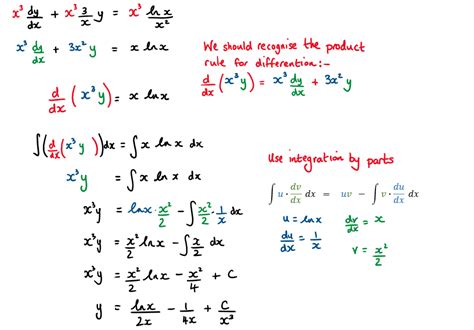 x³ dy/dx + x³ 3/x y = x³ ln x/x²
x³ dy/dx + 3x² y = x ln x
We should recognise the product
rule for differention:-
d/dx (x³y) = x³ dy/dx + 3x² y
d/dx (x³y) = x ln x
∫(d/dx (x³y))dx = ∫ x ln x dx
x³y = ∫ x ln x dx
x³y = ln x · x²/2 − ∫ x²/2 · 1/x dx
x³y = x²/2 ln x − ∫ x/2 dx
x³y = x²/2 ln x − x²/4 + C
y = ln x/2x − 1/4x + C/x³
Use integration by parts
∫ u · dv/dx dx = uv − ∫ v · du/dx dx
u = ln x dv/dx = x
du/dx = 1/x v = x²/2